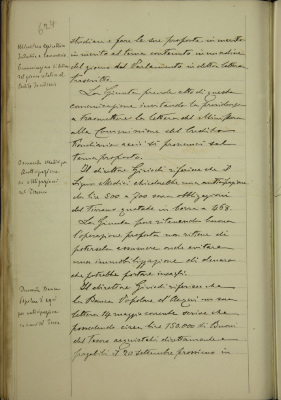 624
studiare e fare le sue proposte in merito
in merito al tema contenuto in un ordine
del giorno del Parlamento in detta lettera
trascritto.
La Giunta prende atto di questa
comunicazione invitando la presidenza
a trasmettere la lettera del Ministero
alla Commissione del Credito
Fondiario acciò si pronunci sul
tema proposto.
Il direttore riferisce che il
Signor Medici chiederebbe una anticipazione
di lire 500 a 700 sopra obbligazioni
del Tirreno quotate in borsa a 468.
La Giunta pur ritenendo buona
l'operazione proposta non ritiene di
poterla assumere onde evitare
una immobilizzazione di denaro
che potrebbe portare
Il direttore riferisce che
la Banca Popolare di Acqui con sua
lettera 14 maggio corrente scrive che
possedendo circa lire 150.000 di Buoni
del Tesoro acquistati direttamente e
pagabili il 20 settembre prossimo in
Ministero Agricoltura
Industria e Commercio
Comunicazione d'ordine
del giorno relativo al
Credito Fondiario
Domanda Medici per
Anticipazione
su obbligazioni
del Tirreno
Domanda Banca
Popolare d'Acqui
per anticipazione
su buoni del Tesoro